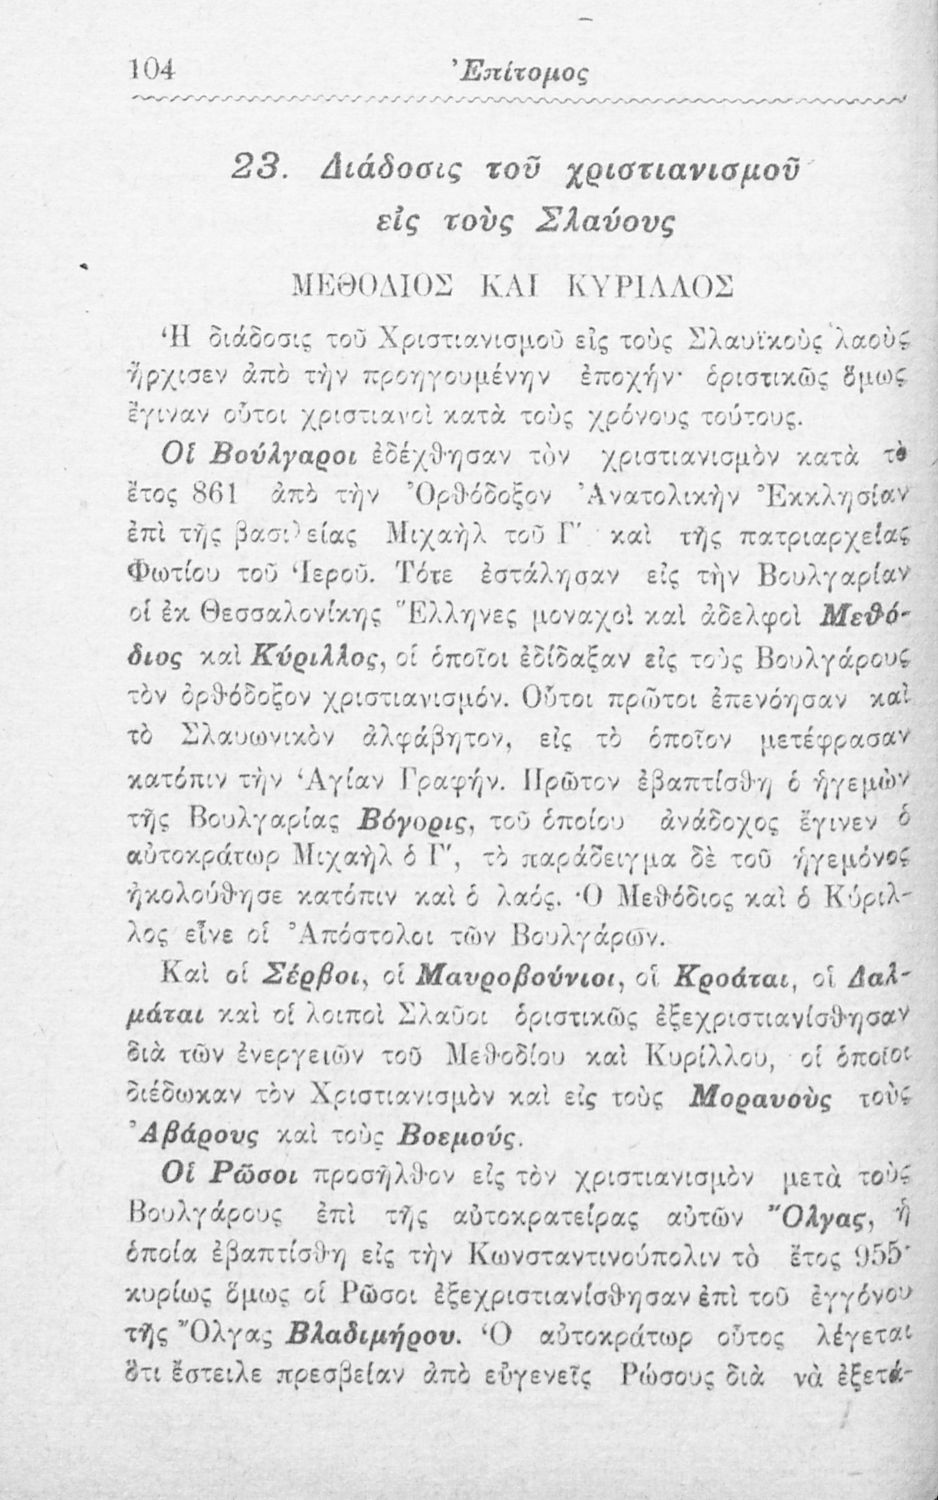 104 Ἐπίτομος
23. Διάδοσις τοῦ χριστιανισμοῦ
εἰς τοὺς Σλαύους
ΜΕΘΟΔΙΟΣ ΚΑΙ ΚΥΡΙΛΛΟΣ
Ἡ διάδοσις τοῦ Χριστιανισμοῦ εἰς τοὺς Σλαυϊκοὺς λαοὺς
ἤρχισεν ἀπὸ τὴν προηγουμένην ἐποχήν· ὁριστικῶς ὅμως
ἔγιναν οὗτοι χριστιανοὶ κατὰ τοὺς χρόνους τούτους.
Οἱ Βούλγαροι ἐδέχθησαν τὸν χριστιανισμὸν κατὰ τὸ
ἔτος 861 ἀπὸ τὴν Ὀρθόδοξον Ἀνατολικὴν Ἐκκλησίαν
ἐπὶ τῆς βασιλείας Μιχαὴλ τοῦ Γ΄ καὶ τῆς πατριαρχείας
Φωτίου τοῦ Ἱεροῦ. Τότε ἐστάλησαν εἰς τὴν Βουλγαρίαν
οἱ ἐκ Θεσσαλονίκης Ἕλληνες μοναχοὶ καὶ ἀδελφοὶ Μεθό-
διος καὶ Κύριλλος, οἱ ὁποῖοι ἐδίδαξαν εἰς τοὺς Βουλγάρους
τὸν ὀρθόδοξον χριστιανισμόν. Οὗτοι πρῶτοι ἐπενόησαν καὶ
τὸ Σλαυωνικὸν ἀλφάβητον, εἰς τὸ ὁποῖον μετέφρασαν
κατόπιν τὴν Ἁγίαν Γραφήν. Πρῶτον ἐβαπτίσθη ὁ ἡγεμὼν
τῆς Βουλγαρίας Βόγορις, τοῦ ὁποίου ἀνάδοχος ἔγινεν ὁ
αὐτοκράτωρ Μιχαὴλ ὁ Γ΄, τὸ παράδειγμα δὲ τοῦ ἡγεμόνος
ἠκολούθησε κατόπιν καὶ ὁ λαός. Ὁ Μεθόδιος καὶ ὁ Κύριλ-
λος εἶνε οἱ Ἀπόστολοι τῶν Βουλγάρων.
Καὶ οἱ Σέρβοι, οἱ Μαυροβούνιοι, οἱ Κροάται, οἱ Δαλ-
μάται καὶ οἱ λοιποὶ Σλαῦοι ὁριστικῶς ἐξεχριστιανίσθησαν
διὰ τῶν ἐνεργειῶν τοῦ Μεθοδίου καὶ Κυρίλλου, οἱ ὁποῖοι
διέδωκαν τὸν Χριστιανισμὸν καὶ εἰς τοὺς Μοραυοὺς τοὺς
Ἀβάρους καὶ τοὺς Βοεμούς.
Οἱ Ρῶσοι προσῆλθον εἰς τὸν χριστιανισμὸν μετὰ τοὺς
Βουλγάρους ἐπὶ τῆς αὐτοκρατείρας αὐτῶν Ὄλγας, ἡ
ὁποία ἐβαπτίσθη εἰς τὴν Κωνσταντινούπολιν τὸ ἔτος 955·
κυρίως ὅμως οἱ Ρῶσοι ἐξεχριστιανίσθησαν ἐπὶ τοῦ ἐγγόνου
τῆς Ὄλγας Βλαδιμήρου. Ὁ αὐτοκράτωρ οὗτος λέγεται
ὅτι ἔστειλε πρεσβείαν ἀπὸ εὐγενεῖς Ρώσους διὰ νὰ ἐξετά-